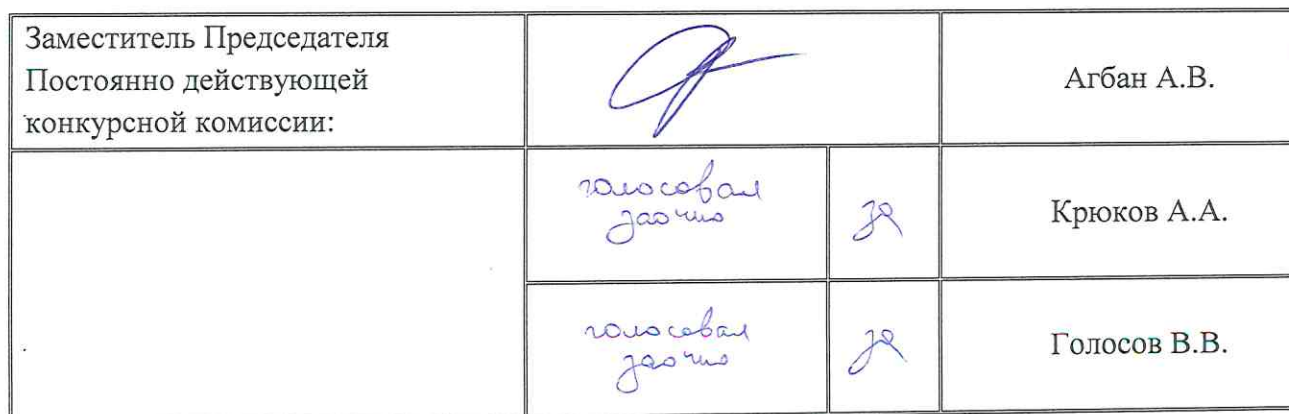 Заместитель Председателя
Постоянно действующей
конкурсной комиссии:
Агбан А.В.
голосовал
заочно
за
Крюков А.А.
голосовал
заочно
за
Голосов В.В.